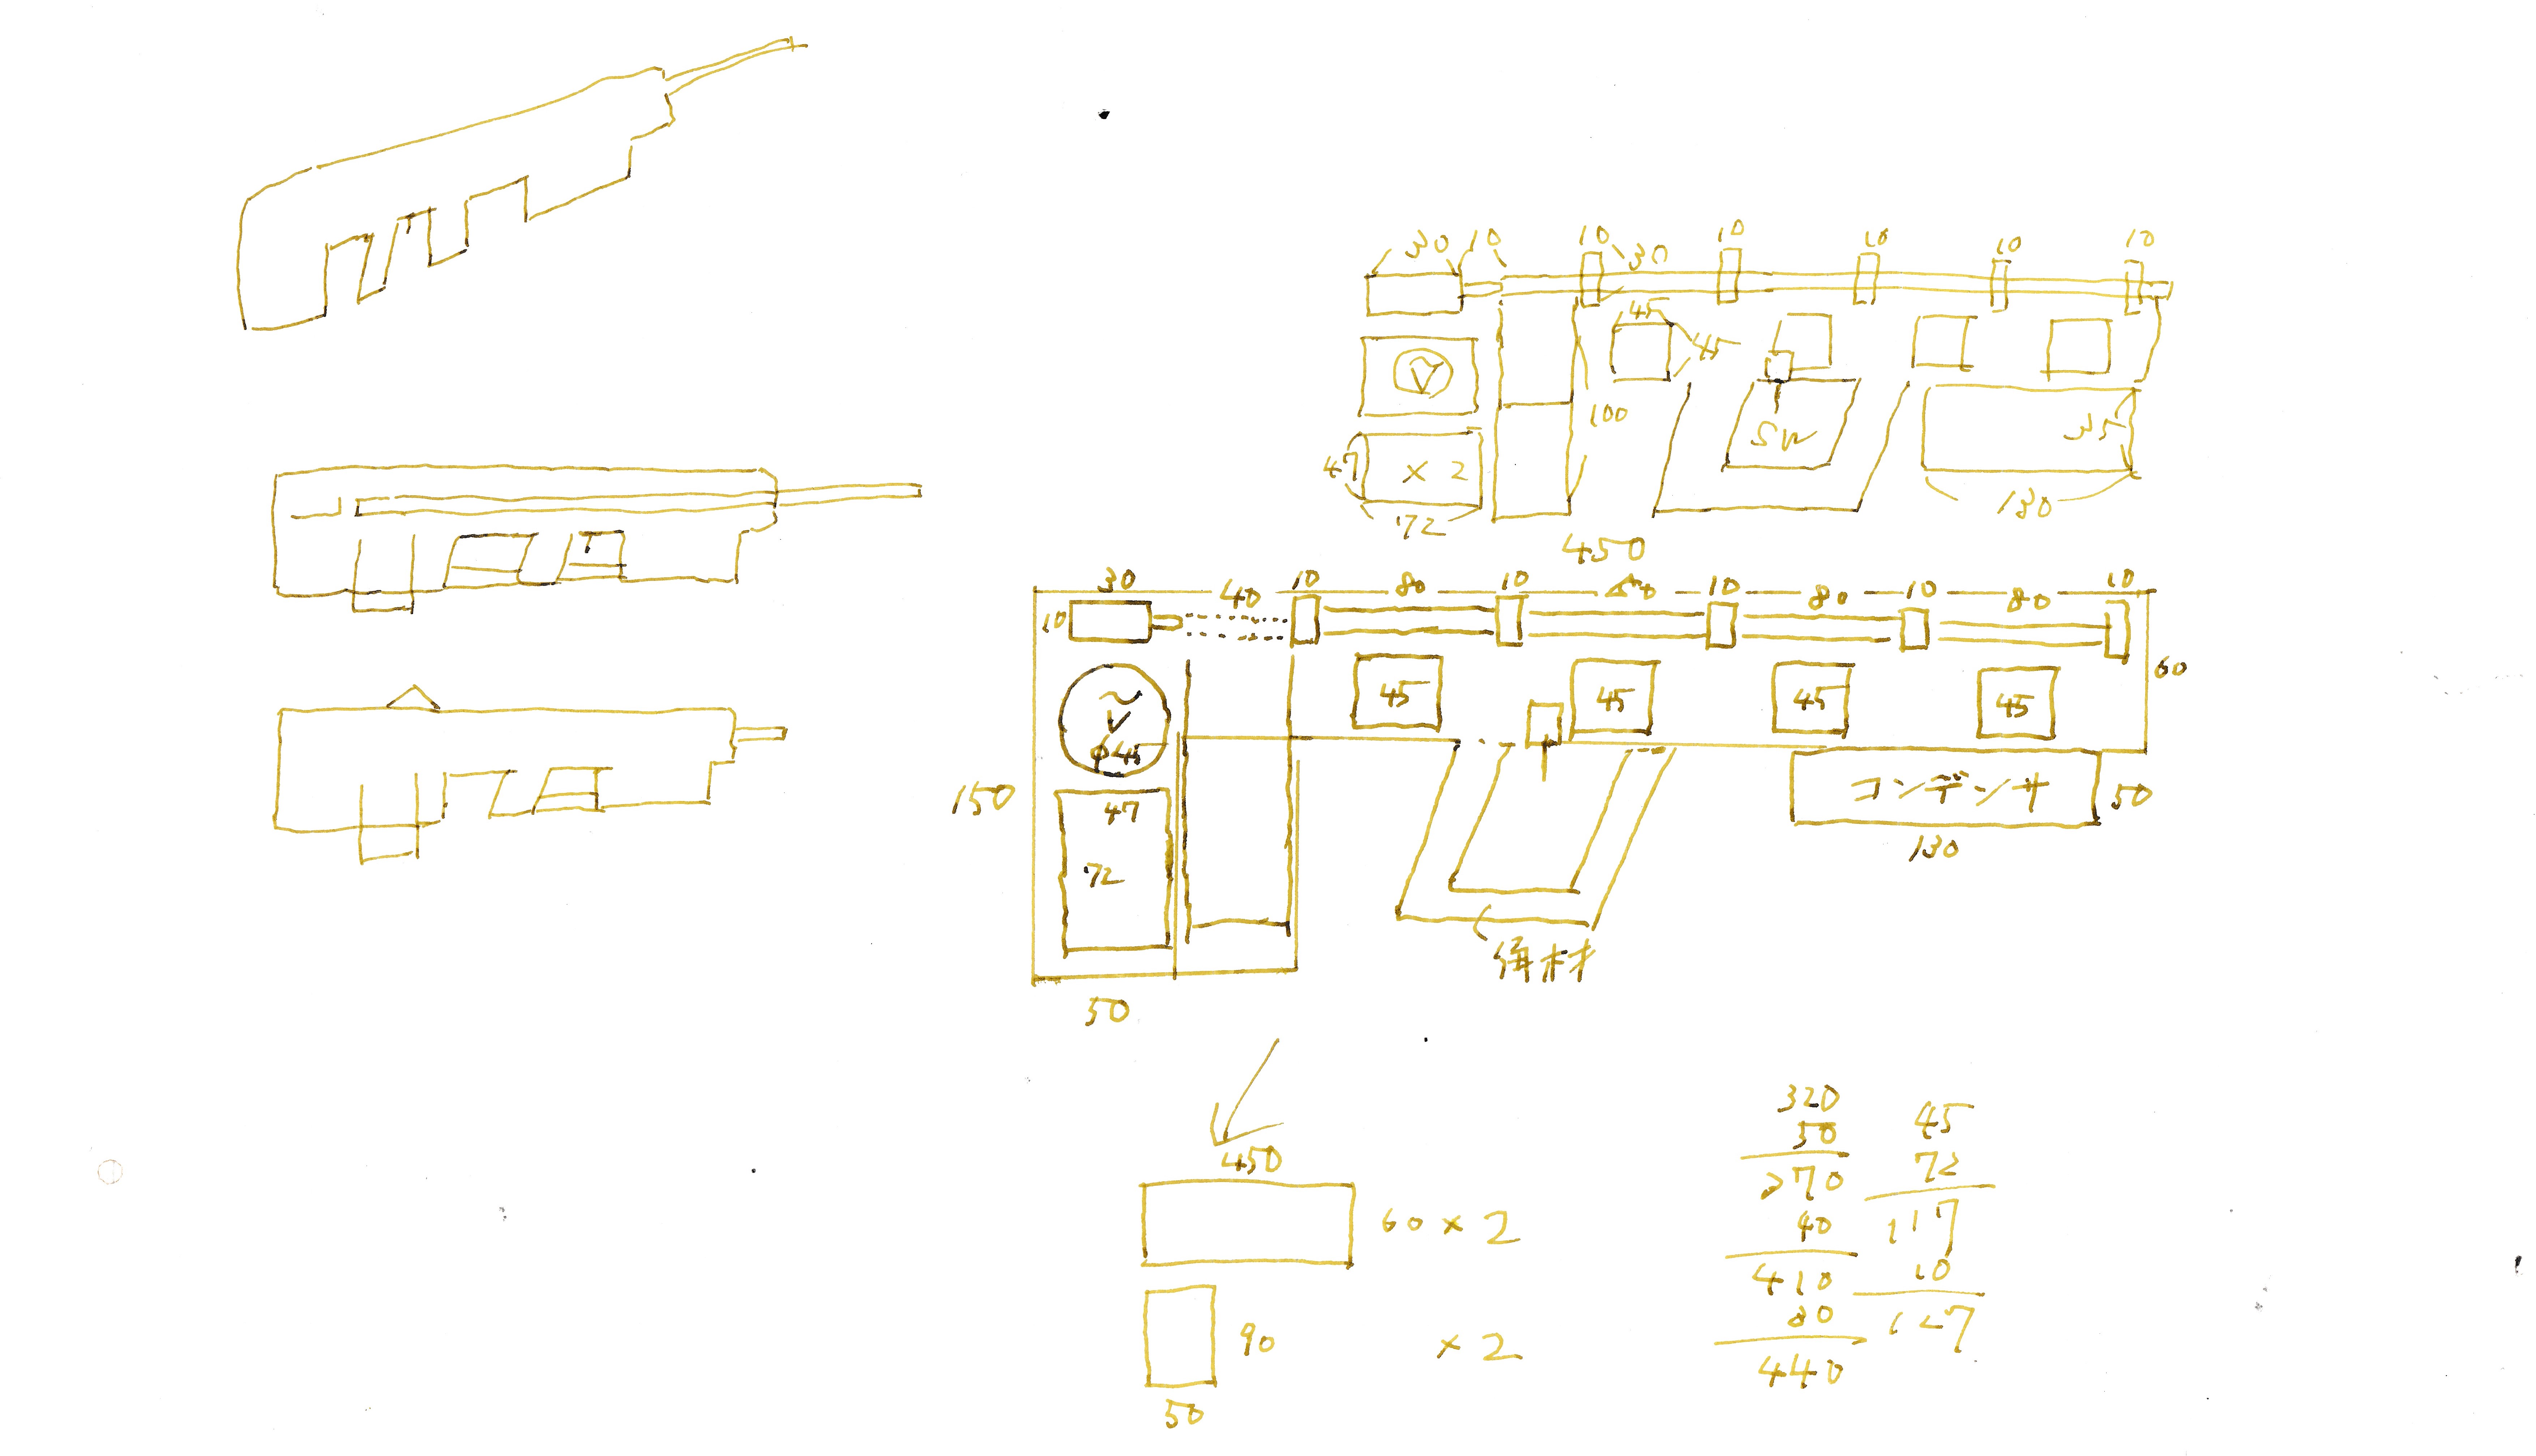 30 10 10 30 10 10 10 10
45
45
V
100
SW
35
47
× 2
72
130
450
30 40 10 80 10 80 10 80 10 80 10
10
60
V
φ45
45 45 45 45
150
47
72
コンデンサ
50
130
50
450
60 × 2
90 × 2
50
320
50
370
40
410
30
440
45
72
117
10
127